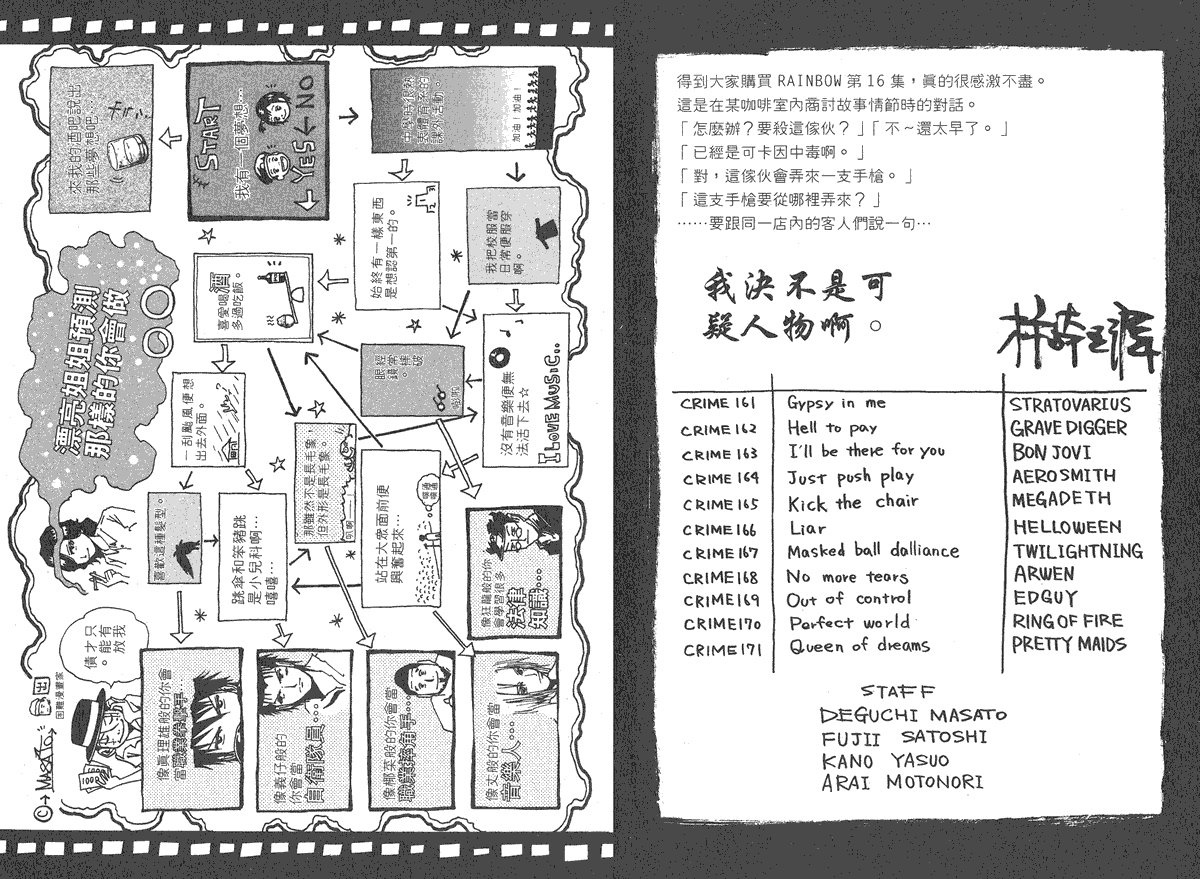 漂亮姐姐預測
那樣的你會做
○○
START
我有一個夢想…
YES
NO
來我的酒吧說出
那些夢想吧…
加油！加油！
始終有一樣東西
是想認第一的。
我把校服當
日常便服穿
啊。
喜愛喝酒
多過吃飯。
眼鏡
經常
摔破。
沒有音樂便無
法活下去☆
I LOVE MUSIC...
一刮颱風便想
出去外面。
那雖然不是長毛象，
但外形是長毛象。
站在大眾面前便
興奮起來…
喜歡這種髮型。
跳傘和笨豬跳
是小兒科啊…
嘻嘻…
像狂龍般的你
會學習很多
法律
知識…
像眞理雄般的你會
當職業拳擊手
像義仔般的
你會當
自衛隊員…
像椰菜般的你會當
職業摔角手…
像丈般的你會當
音樂人…
我只
有才
放能
債。
困難漫畫家
©→MASATO→
得到大家購買 RAINBOW 第 16 集，眞的很感激不盡。
這是在某咖啡室內商討故事情節時的對話。
「怎麼辦？要殺這傢伙？」「不～還太早了。」
「已經是可卡因中毒啊。」
「對，這傢伙會弄來一支手槍。」
「這支手槍要從哪裡弄來？」
……要跟同一店內的客人們說一句…
我決不是可
疑人物啊。
CRIME 161 Gypsy in me STRATOVARIUS
CRIME 162 Hell to pay GRAVE DIGGER
CRIME 163 I'll be there for you BON JOVI
CRIME 164 Just push play AEROSMITH
CRIME 165 Kick the chair MEGADETH
CRIME 166 Liar HELLOWEEN
CRIME 167 Masked ball dalliance TWILIGHTNING
CRIME 168 No more tears ARWEN
CRIME 169 Out of control EDGUY
CRIME 170 Perfect world RING OF FIRE
CRIME 171 Queen of dreams PRETTY MAIDS
STAFF
DEGUCHI MASATO
FUJII SATOSHI
KANO YASUO
ARAI MOTONORI